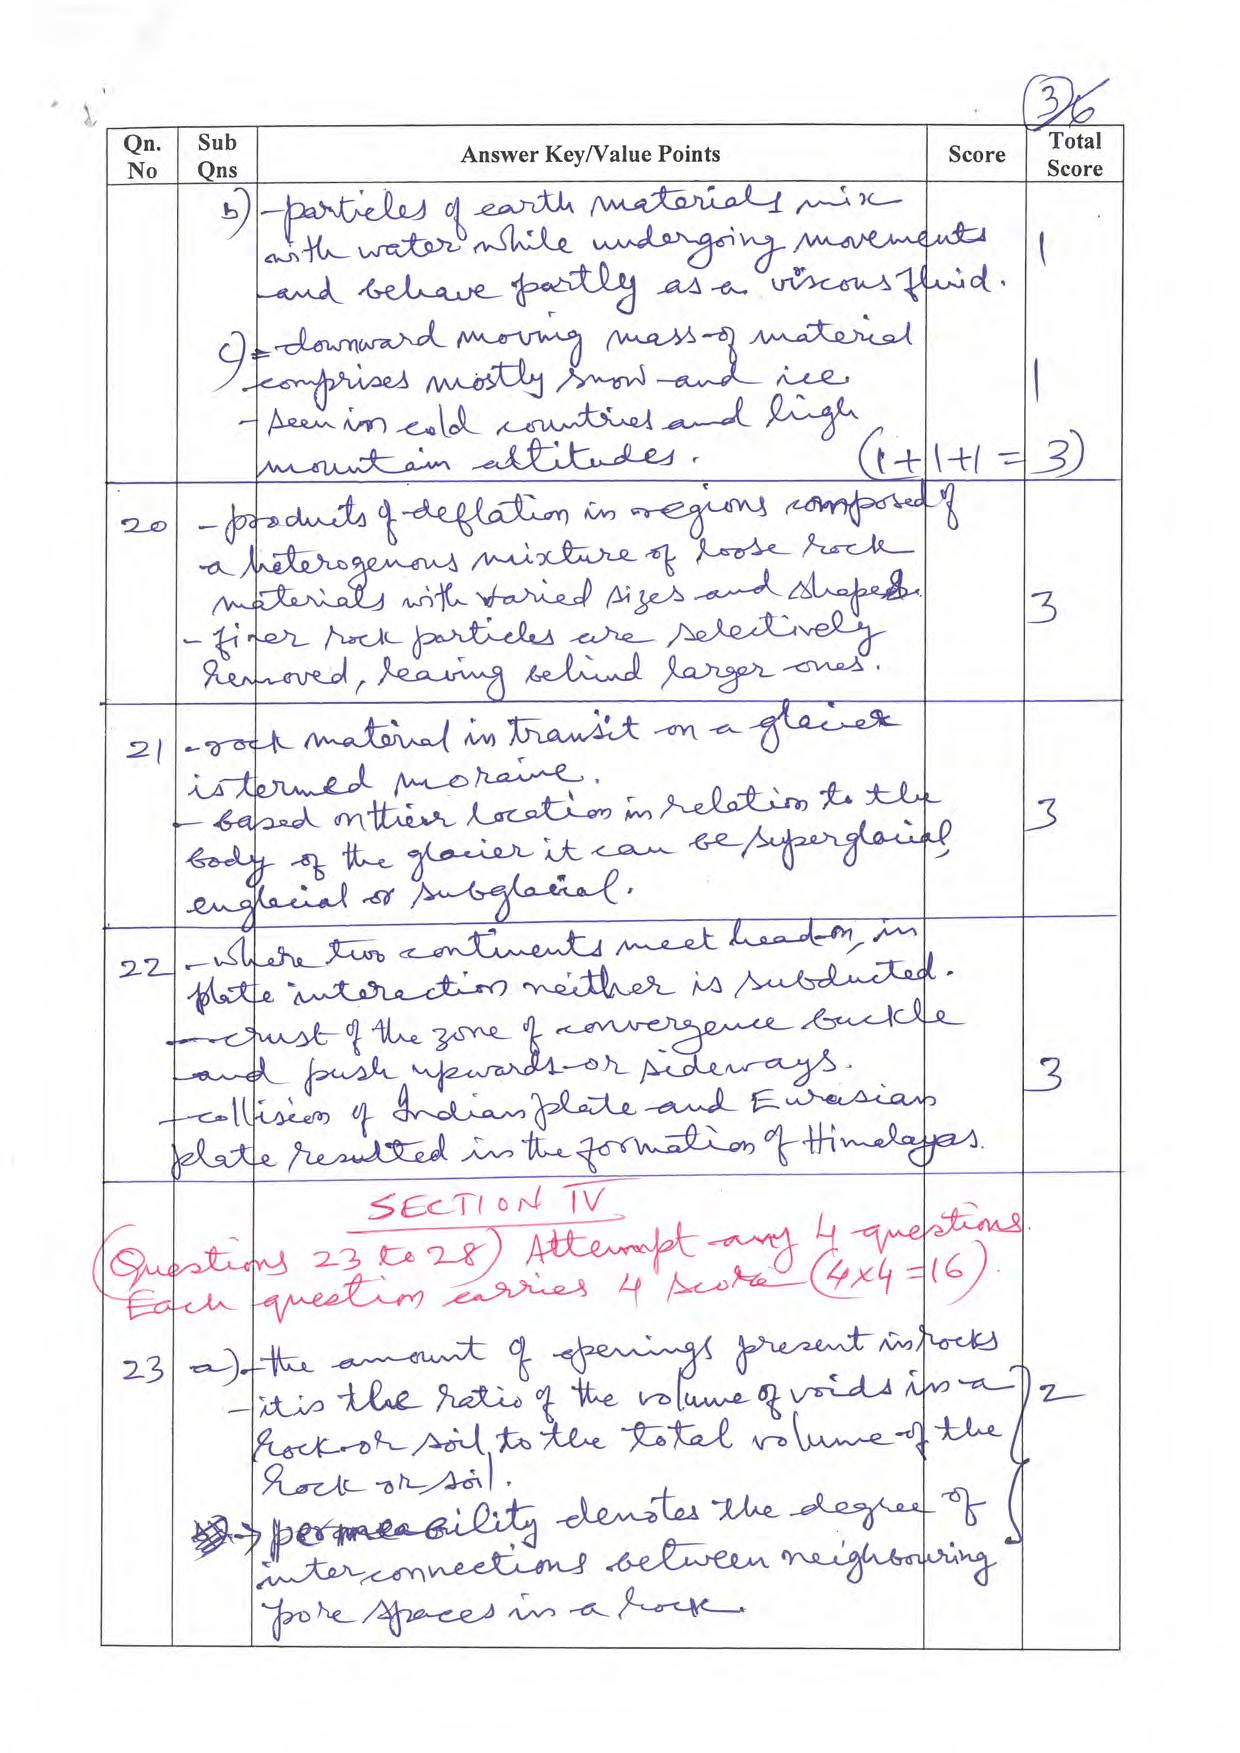 3/6
Qn. No Sub Qns Answer Key/Value Points Score Total Score
b) - particles of earth materials mix
with water while undergoing movements 1
and behave partly as a viscous fluid.
c) - downward moving mass of material
comprises mostly snow and ice. 1
- seen in cold countries and high
mountain altitudes. (1+1+1 = 3)
20 - products of deflation in regions composed of
a heterogenous mixture of loose rock
materials with varied sizes and shapes. 3
- finer rock particles are selectively
removed, leaving behind larger ones.
21 - rock material in transit on a glacier
is termed moraine.
- based on their location in relation to the 3
body of the glacier it can be superglacial,
englacial or subglacial.
22 - where two continents meet head-on, in
plate interaction neither is subducted.
- crust of the zone of convergence buckle
and push upwards or sideways. 3
- collision of Indian plate and Eurasian
plate resulted in the formation of Himalayas.
SECTION IV
(Questions 23 to 28) Attempt any 4 questions.
Each question carries 4 score (4x4=16).
23 a) - the amount of openings present in rocks
- it is the ratio of the volume of voids in a 2
rock or soil to the total volume of the
rock or soil.
→ permeability denotes the degree of
interconnections between neighbouring
pore spaces in a rock.